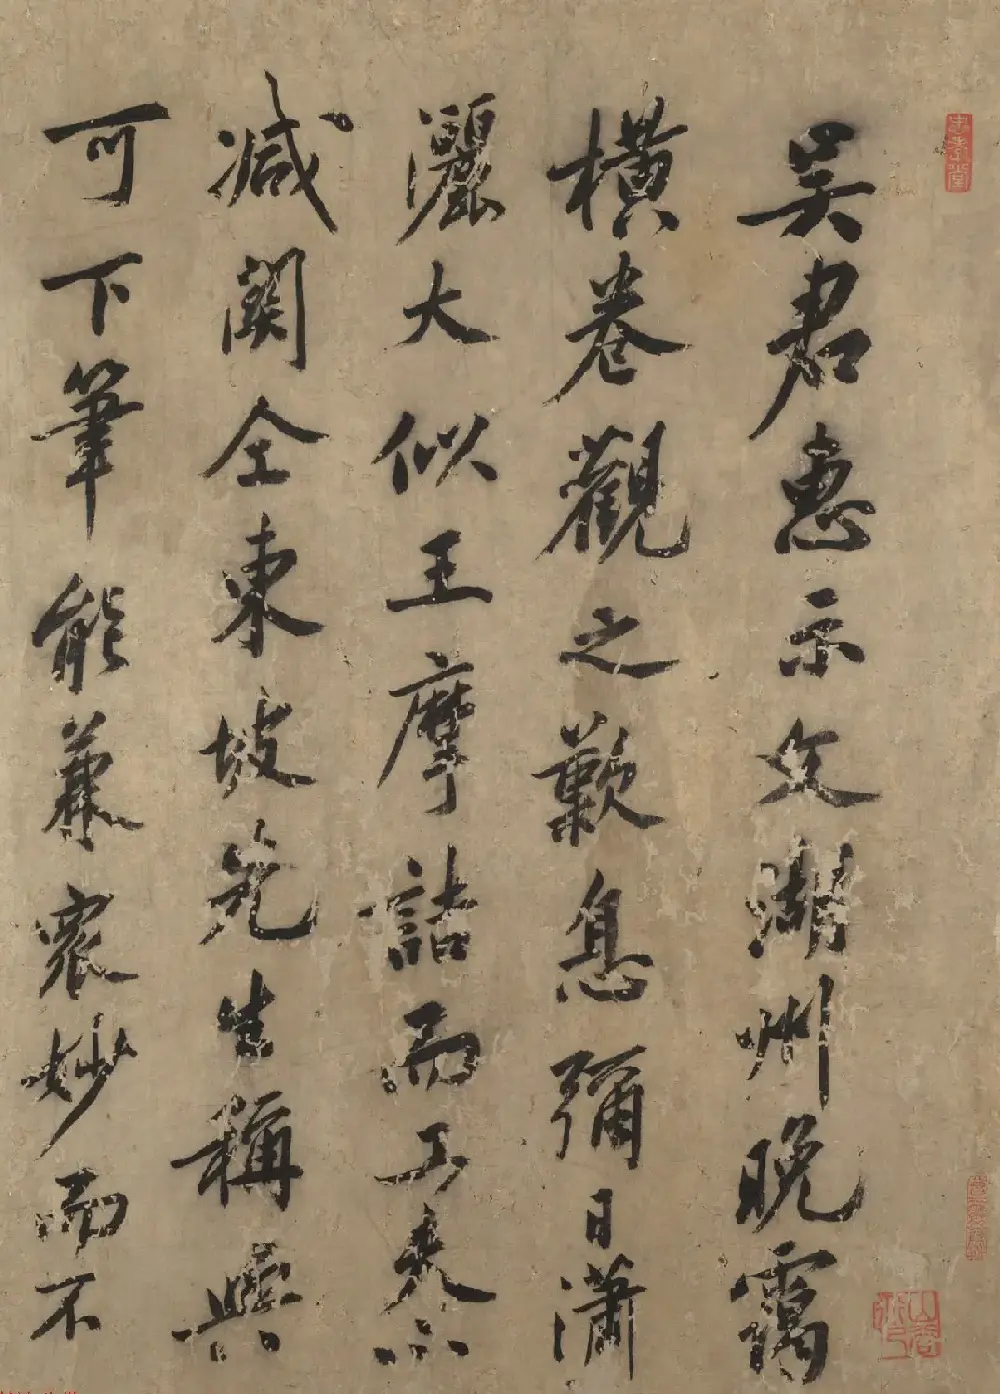 吳君惠示文湖州晚靄
橫卷觀之歎息彌日瀟
灑大似王摩詰而工夫不
減關仝東坡先生稱與
可下筆能兼衆妙而不
忠孝堂